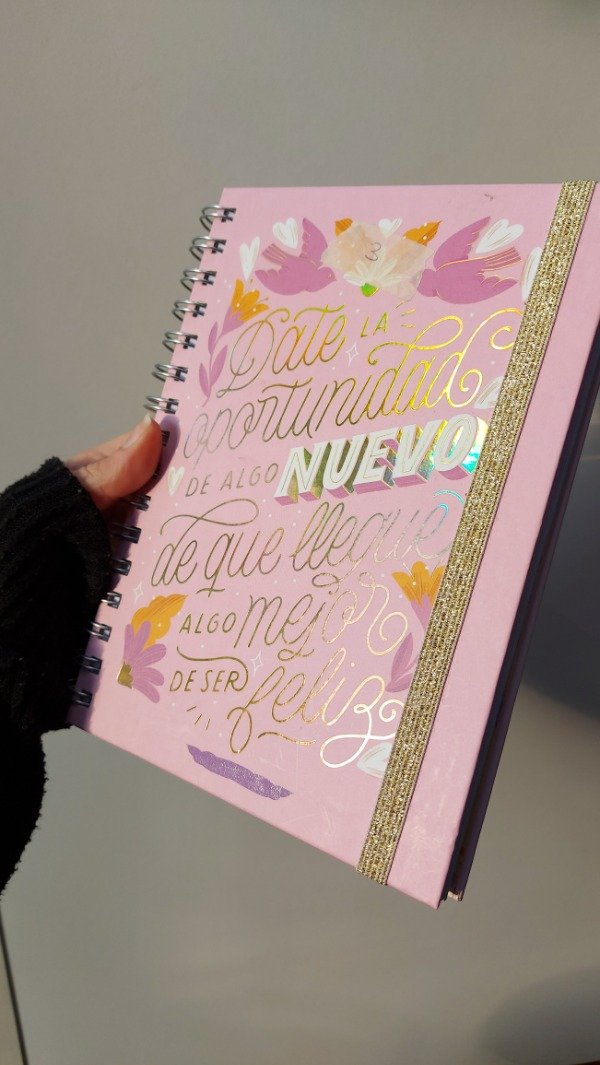 3
Date LA
oportunidad
DE ALGO NUEVO
de que llegue
ALGO mejor
DE SER feliz